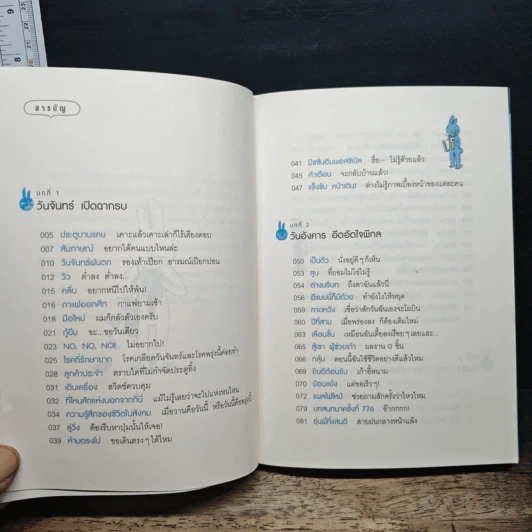 สารบัญ
บทที่ 1
วันจันทร์ เปิดฉากรบ
005 ประตูบานแคบ เคาะแล้วเคาะเล่าก็ไร้เสียงตอบ
007 สัมภาษณ์ อยากได้คนแบบไหนล่ะ
010 วันจันทร์ฝนตก รองเท้าเปียก อารมณ์เปียกปอน
012 วิว ต่ำลง ต่ำลง...
015 คลื่น อยากหนีไปให้พ้น!
016 กาแฟออกศึก กาแฟยามเช้า
018 มือใหม่ ผมก็กลัวตัวเองครับ
021 กู้ยืม ขะ...ขอวันเดียว
023 NO, NO, NO! ไม่อยากไป!
025 โรคที่รักษายาก โรคเกลียดวันจันทร์และโรคพรุ่งนี้ค่อยทำ
028 ลูกค้าประจำ ตราบใดที่ไม่กำจัดประตูทิ้ง
031 เดินเครื่อง สวิตช์ควบคุม
032 ที่ไหนสักแห่งนอกจากที่นี่ แม้ไม่รู้เลยว่าจะไปแห่งหนไหน
034 ความรู้สึกของชีวิตในสังคม เมื่อวานคือวันนี้ หรือวันนี้คือพรุ่งนี้
037 คู่วิ่ง ต้องรีบหาปุ่มนั้นให้เจอ!
039 ห้ามตรงไป ขอเดินตรง ๆ ได้ไหม
041 มิชชั่นอิมพอสซิเบิล ชื่อ– ไม่รู้ด้วยแล้ว
045 คำเตือน จะกลับบ้านแล้ว!
047 แข็งขืน หน้าเดิน! ต่างไม่รู้ภาพเบื้องหน้าของแต่ละคน
บทที่ 2
วันอังคาร อึดอัดใจพิกล
050 เป็นตัว นั่งอยู่ดี ๆ ก็เห็น
053 สูบ ที่ยอมไม่ใช่ไม่รู้
054 ต่างบริบท ถึงตาฉันแล้วนี่
056 อีแบบนี้ก็มีด้วย ทำยังไงให้หยุด
059 คาดหวัง เชื่อว่าสักวันฉันเองจะโผบิน
060 มีที่สาม เมื่อพร่องลง ก็ต้องเติมใหม่
063 เลื่อนชั้น เหมือนฉันเตี้ยลงเรื่อย ๆ เลยแฮะ...
065 สู้เขา ผู้ช่วยเก้า ผลงาน 0 ชิ้น
066 กลุ้ม ตอนนี้ฉันใช้ชีวิตอย่างดีแล้วไหม
069 ยินดีต้อนรับ เก้าอี้หนาม
070 ป้อนแข้ง แค่ขอเร็วๆ!
072 แผลไฟไหม้ ช่วยถามสักครั้งว่าไหวไหม
079 บทสนทนาครั้งที่ 776 อ๊ากกกก!
081 รุ่นพี่ที่แสนดี สายฝนกลางหน้าแล้ง